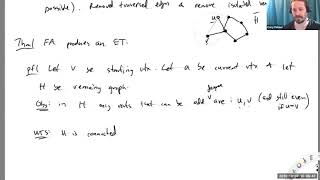 possible). Removed traversed edges & remove isolated
H
Thm) FA produces an ET.
pf) Let v be starting vtx. Let u be current vtx & let
H be remaining graph.
Obs: in H only vtxs that can be odd are: u, v (and still even if u=v
WTS: H is connected